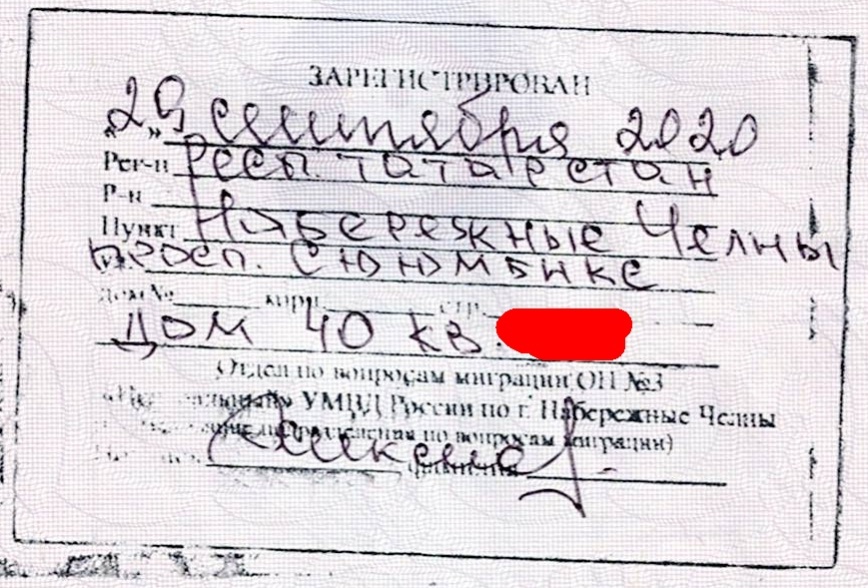 ЗАРЕГИСТРИРОВАН
"29" сентября 2020
Рег-н Респ. Татарстан
Р-н
Пункт Набережные Челны
просп. Сююмбике
дом № корп. стр.
Дом 40 кв.
Отдел по вопросам миграции ОП №3
УМВД России по г. Набережные Челны
подразделения по вопросам миграции)
фамилия